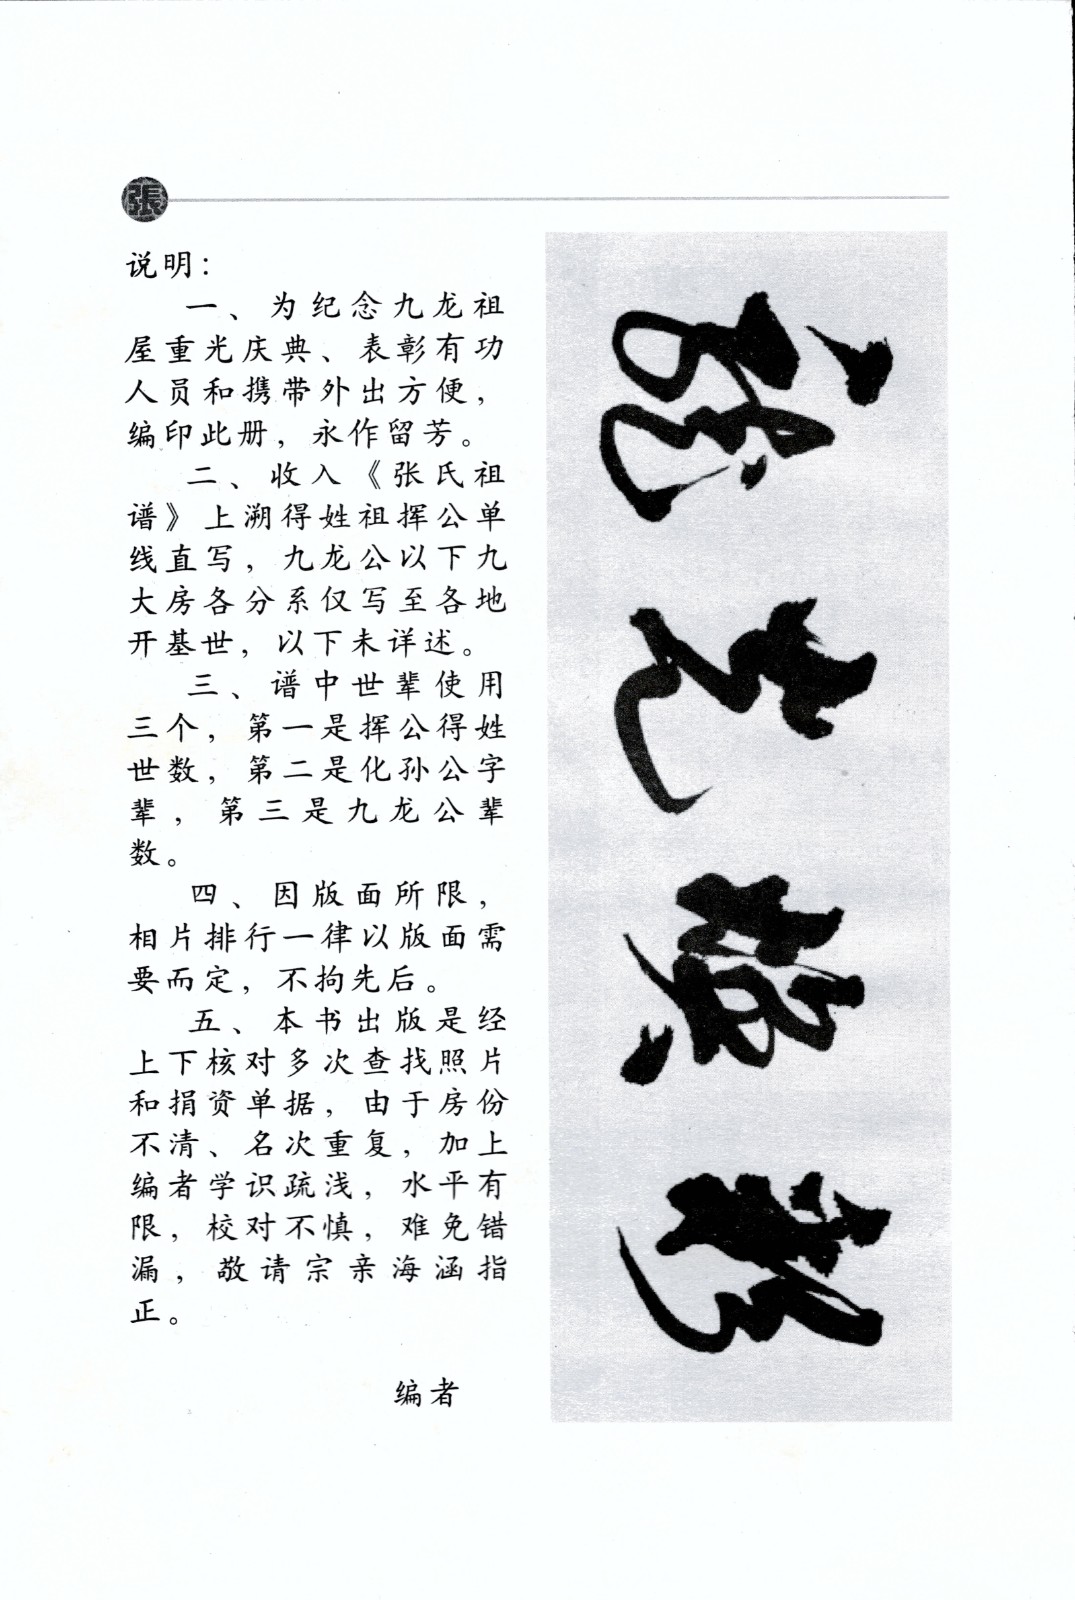 張
说明：
一、为纪念九龙祖
屋重光庆典、表彰有功
人员和携带外出方便，
编印此册，永作留芳。
二、收入《张氏祖
谱》上溯得姓祖挥公单
线直写，九龙公以下九
大房各分系仅写至各地
开基世，以下未详述。
三、谱中世辈使用
三个，第一是挥公得姓
世数，第二是化孙公字
辈，第三是九龙公辈
数。
四、因版面所限，
相片排行一律以版面需
要而定，不拘先后。
五、本书出版是经
上下核对多次查找照片
和捐资单据，由于房份
不清、名次重复，加上
编者学识疏浅，水平有
限，校对不慎，难免错
漏，敬请宗亲海涵指
正。
编者